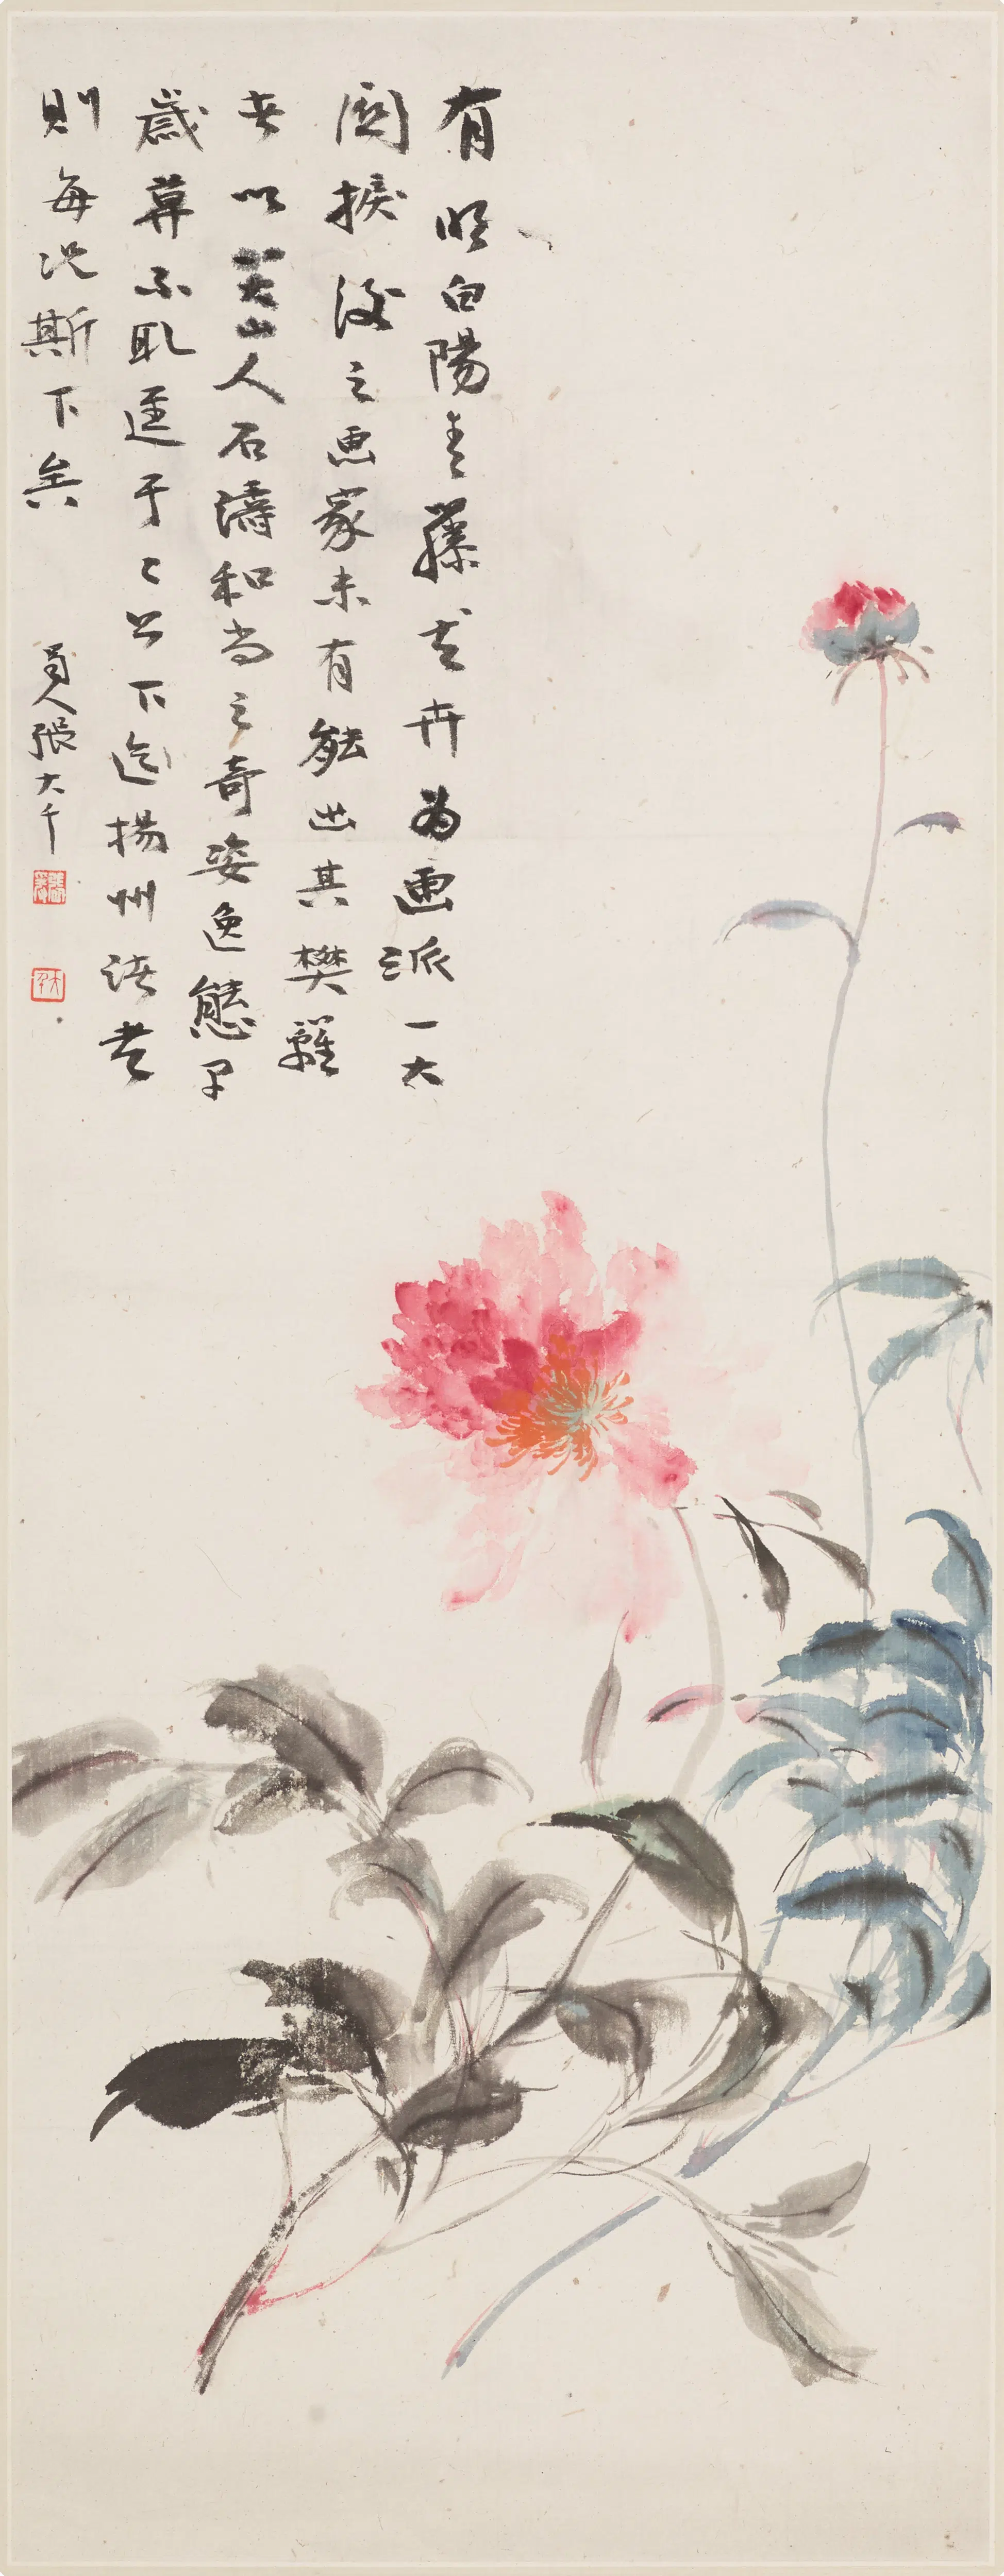 有明白陽青藤花卉為畫派一大
關捩後之畫家未有能出其樊籬
者以大山人石濤和尚之奇姿逸態早
歲于二公下迄揚州諸老
則每況斯下矣 蜀人張大千
張爰
大千